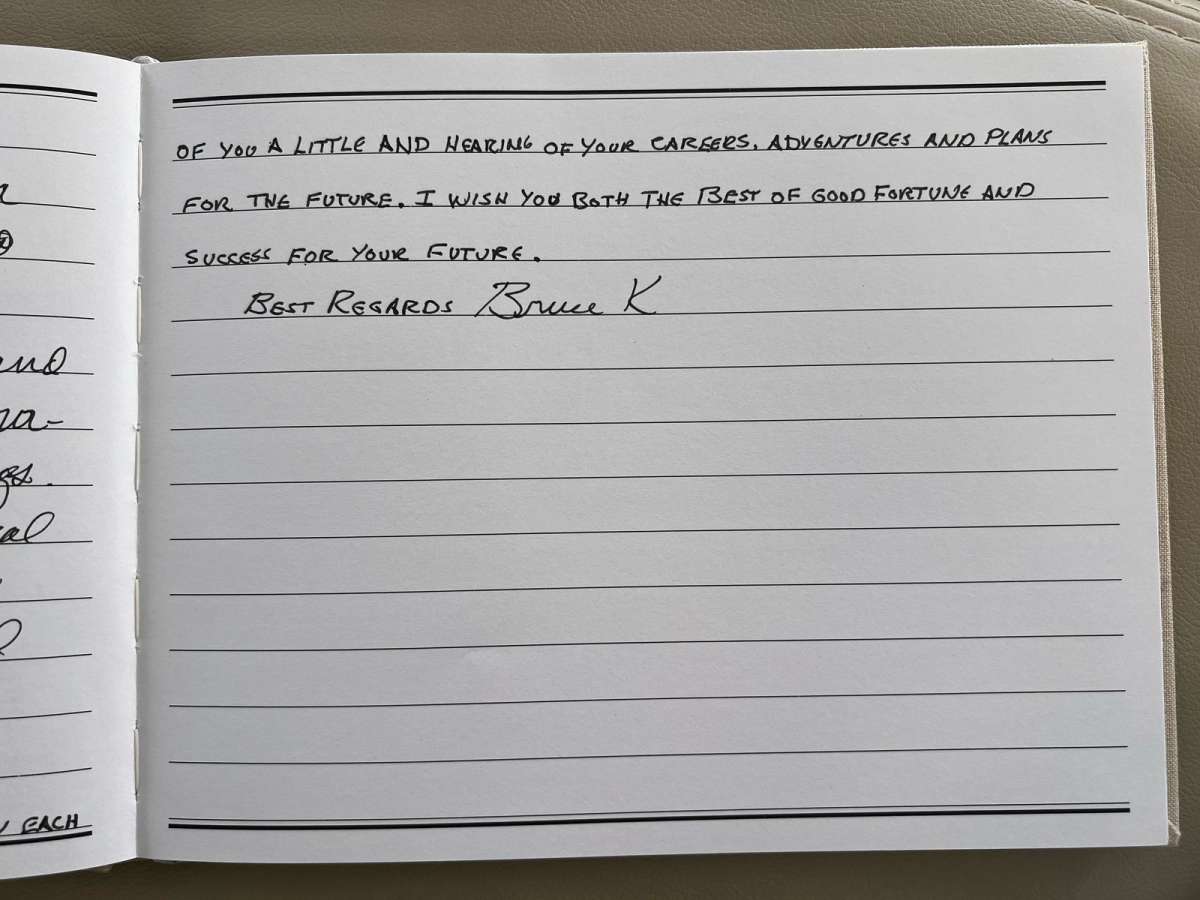 und
gs.
EACH
OF YOU A LITTLE AND HEARING OF YOUR CAREERS, ADVENTURES AND PLANS
FOR THE FUTURE. I WISH YOU BOTH THE BEST OF GOOD FORTUNE AND
SUCCESS FOR YOUR FUTURE.
BEST REGARDS Bruce K